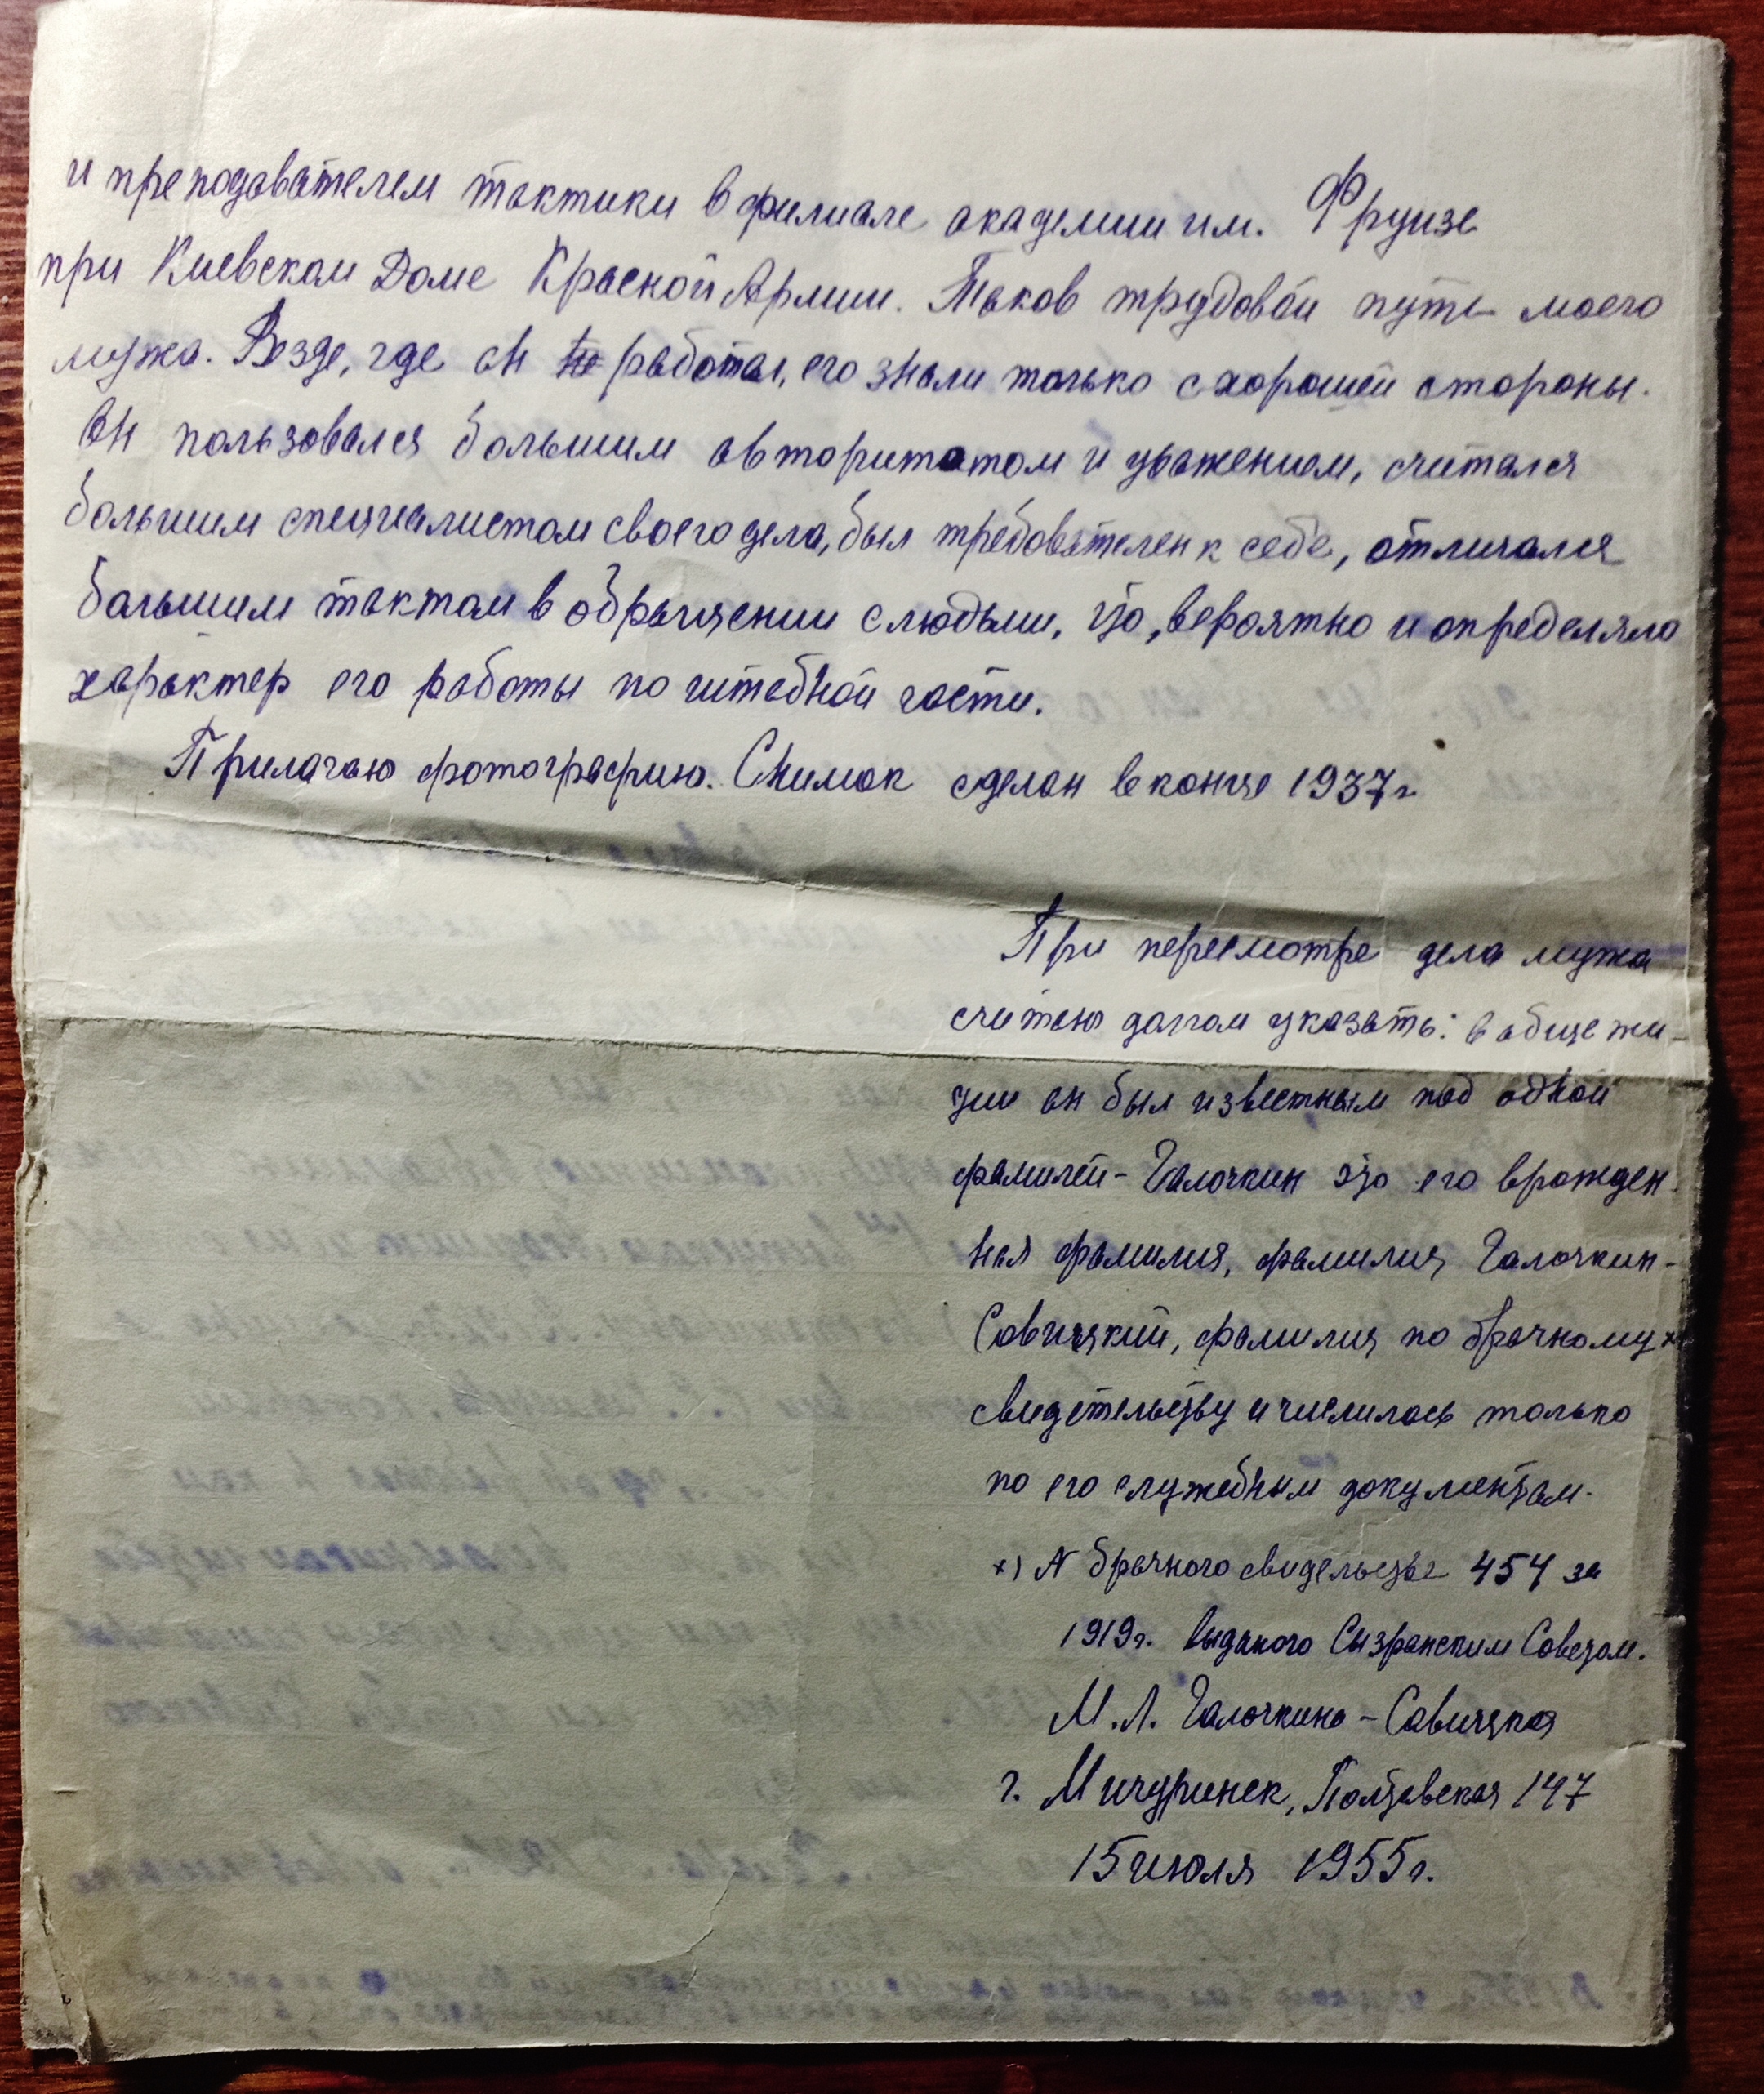 и преподавателем тактики в филиале академии им. Фрунзе
при Киевском Доме Красной Армии. Таков трудовой путь моего
мужа. Везде, где он работал, его знали только с хорошей стороны.
Он пользовался большим авторитатом и уважением, считался
большим специалистом своего дела, был требователен к себе, отличался
большим тактом в обращении с людьми, что, вероятно и определяло
характер его работы по штабной части.
Прилагаю фотографию. Снимок сделан в конце 1937 г
При пересмотре дела мужа
считаю долгом указать: в общежи-
тии он был известным под одной
фамилей - Галочкин это его врожден-
ная фамилия, фамилия Галочкин-
Савицкий, фамилия по брачному х)
свидетельству и числилась только
по его служебным документам.
х) N брачного свидельства 454 за
1919 г. выданого Сызранским Советом.
М. Л. Галочкина - Савицкая
г. Мичуринск, Полтавская 147
15 июля 1955 г.